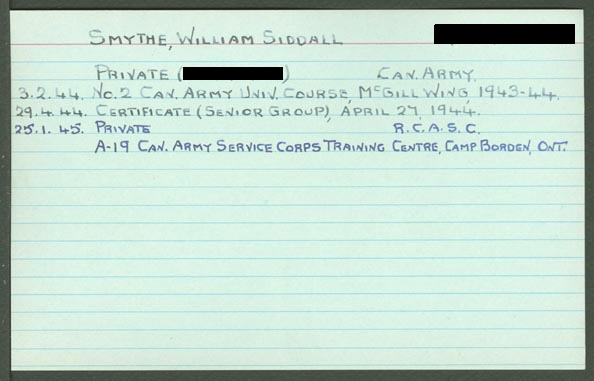 SMYTHE, WILLIAM SIDDALL
PRIVATE ( ) CAN. ARMY.
3.2.44. NO.2 CAN. ARMY UNIV. COURSE, MCGILL WING, 1943-44.
29.4.44. CERTIFICATE (SENIOR GROUP), APRIL 27, 1944.
25.1.45. PRIVATE R.C.A.S.C.
A-19 CAN. ARMY SERVICE CORPS TRAINING CENTRE, CAMP BORDEN, ONT.